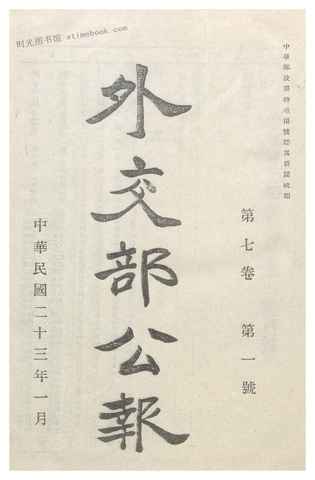 时光图书馆 etimebook.com
中華郵政特准掛號認爲新聞紙類
第七卷 第一號
外交部公報
中華民國二十三年一月